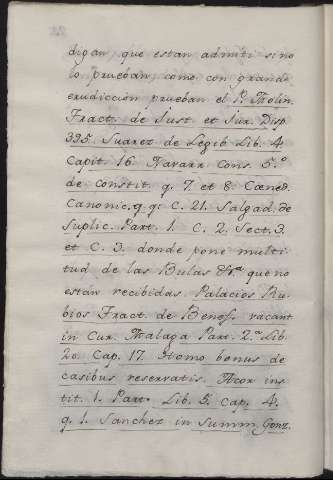 digan, que estan admiti sino
lo prueban, como con grande
erudicción prueban el P. Molin.
Tract. de Just. et Jur. Disp.
335. Suarez de Legib Lib. 4.
Capit. 16. Navarr. Cons. 5.º
de Constit. q. 7. et 8.
Canonic. q. q. C. 21. Salgad. de
Suplic. Part. 1. C. 2. Sect. 3.
et C. 3. donde pone multi
tud de las Bulas &rª que no
están recibidas. Palacios Ru-
bios Tract. de Benef. vacant
in Cur. Malaga Part. 2.ª Lib.
20. Cap. 17. Homo bonus de
casibus reservatis. Acor ins
tit. 1. Part. Lib. 5. Cap. 4.
q. 1. Sanchez in Summ. Gonz.